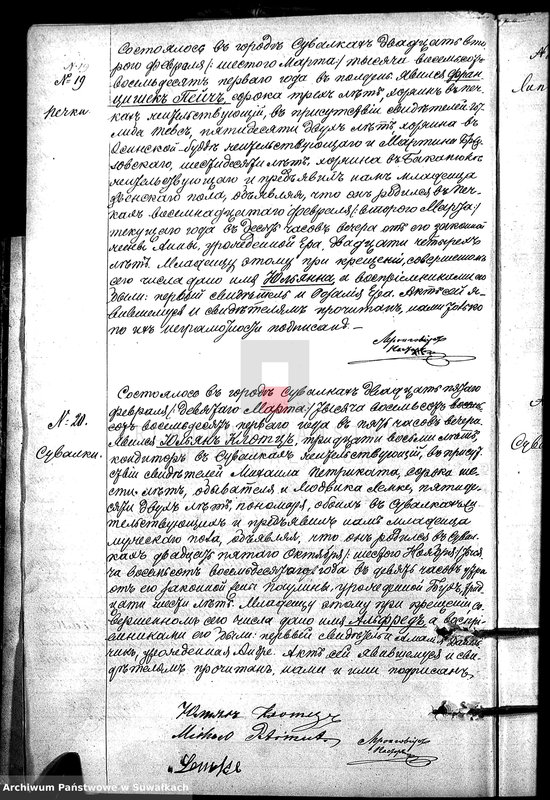 № 19
речки
Состоялось въ городѣ Сувалкахъ двадцать вто-
рого февраля /: шестого Марта :/ тысяча восемьсотъ
восемьдесятъ перваго года въ полдень. Явился Фран-
цишекъ Пейчъ, сорока трехъ лѣтъ, хозяинъ въ Реч-
кахъ жительствующій, въ присутствіи свидѣтелей
пятидесяти двухъ лѣтъ хозяина въ
Осинской Будѣ жительствующаго и Мартина
шестидесяти лѣтъ, хозяина въ
жительствующаго и предъявилъ намъ младенца
женскаго пола, объявляя, что онъ родился въ Реч-
кахъ восемнадцатаго февраля /: второго Марта :/
текущаго года въ десять часовъ вечера отъ его законной
жены Анны, урожденной Ера, двадцати четырехъ
лѣтъ. Младенцу этому при крещеніи, совершенномъ
сего числа дано имя Юльянна, а воспріемниками его
были: первый свидѣтель и Розалія Ера. Актъ сей я-
вившемуся и свидѣтелямъ прочитанъ, нами только
по ихъ неграмотности подписанъ. —
№ 20.
Сувалки.
Состоялось въ городѣ Сувалкахъ двадцать пятаго
февраля /: девятаго Марта :/ тысяча восемьсотъ
восемьдесятъ перваго года въ пять часовъ вечера.
Явился Юльянъ Клотцъ, тридцати восьми лѣтъ,
кондиторъ въ Сувалкахъ жительствующій, въ присут-
ствіи свидѣтелей Михаила Петриката, сорока ше-
сти лѣтъ, обывателя и Людвика Лемке, пятиде-
сяти двухъ лѣтъ, пономаря, обоихъ въ Сувалкахъ жи-
тельствующихъ и предъявилъ намъ младенца
мужескаго пола, объявляя, что онъ родился въ Сувал-
кахъ двадцать пятаго Октября /: шестого Ноября :/ тыся-
ча восемьсотъ восемьдесятаго года въ девять часовъ утра
отъ его законной жены Паулины, урожденной
тридцати шести лѣтъ. Младенцу этому при крещеніи, со-
вершенномъ сего числа дано имя Альфредъ, а воспрі-
емниками его были: первый свидѣтель и
урожденная Актъ сей явившемуся и сви-
дѣтелямъ прочитанъ, нами и ими подписанъ.
Юльян Клотцъ
Lemke
Archiwum Państwowe w Suwałkach